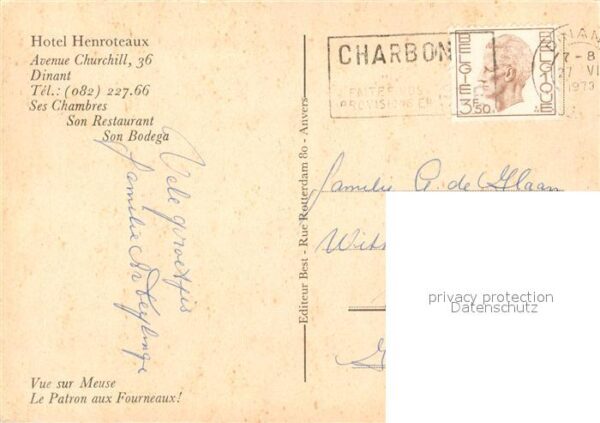 Hotel Henroteaux
Avenue Churchill, 36
Dinant
Tél.: (082) 227.66
Ses Chambres
Son Restaurant
Son Bodega
Vele groetjes
familie
Vue sur Meuse
Le Patron aux Fourneaux!
Editeur Best - Rue Rotterdam 80 - Anvers
CHARBON
FAITES VOS
PROVISIONS
BELGIE
BELGIQUE
3F50
1973
familie A. de Haan
privacy protection
Datenschutz